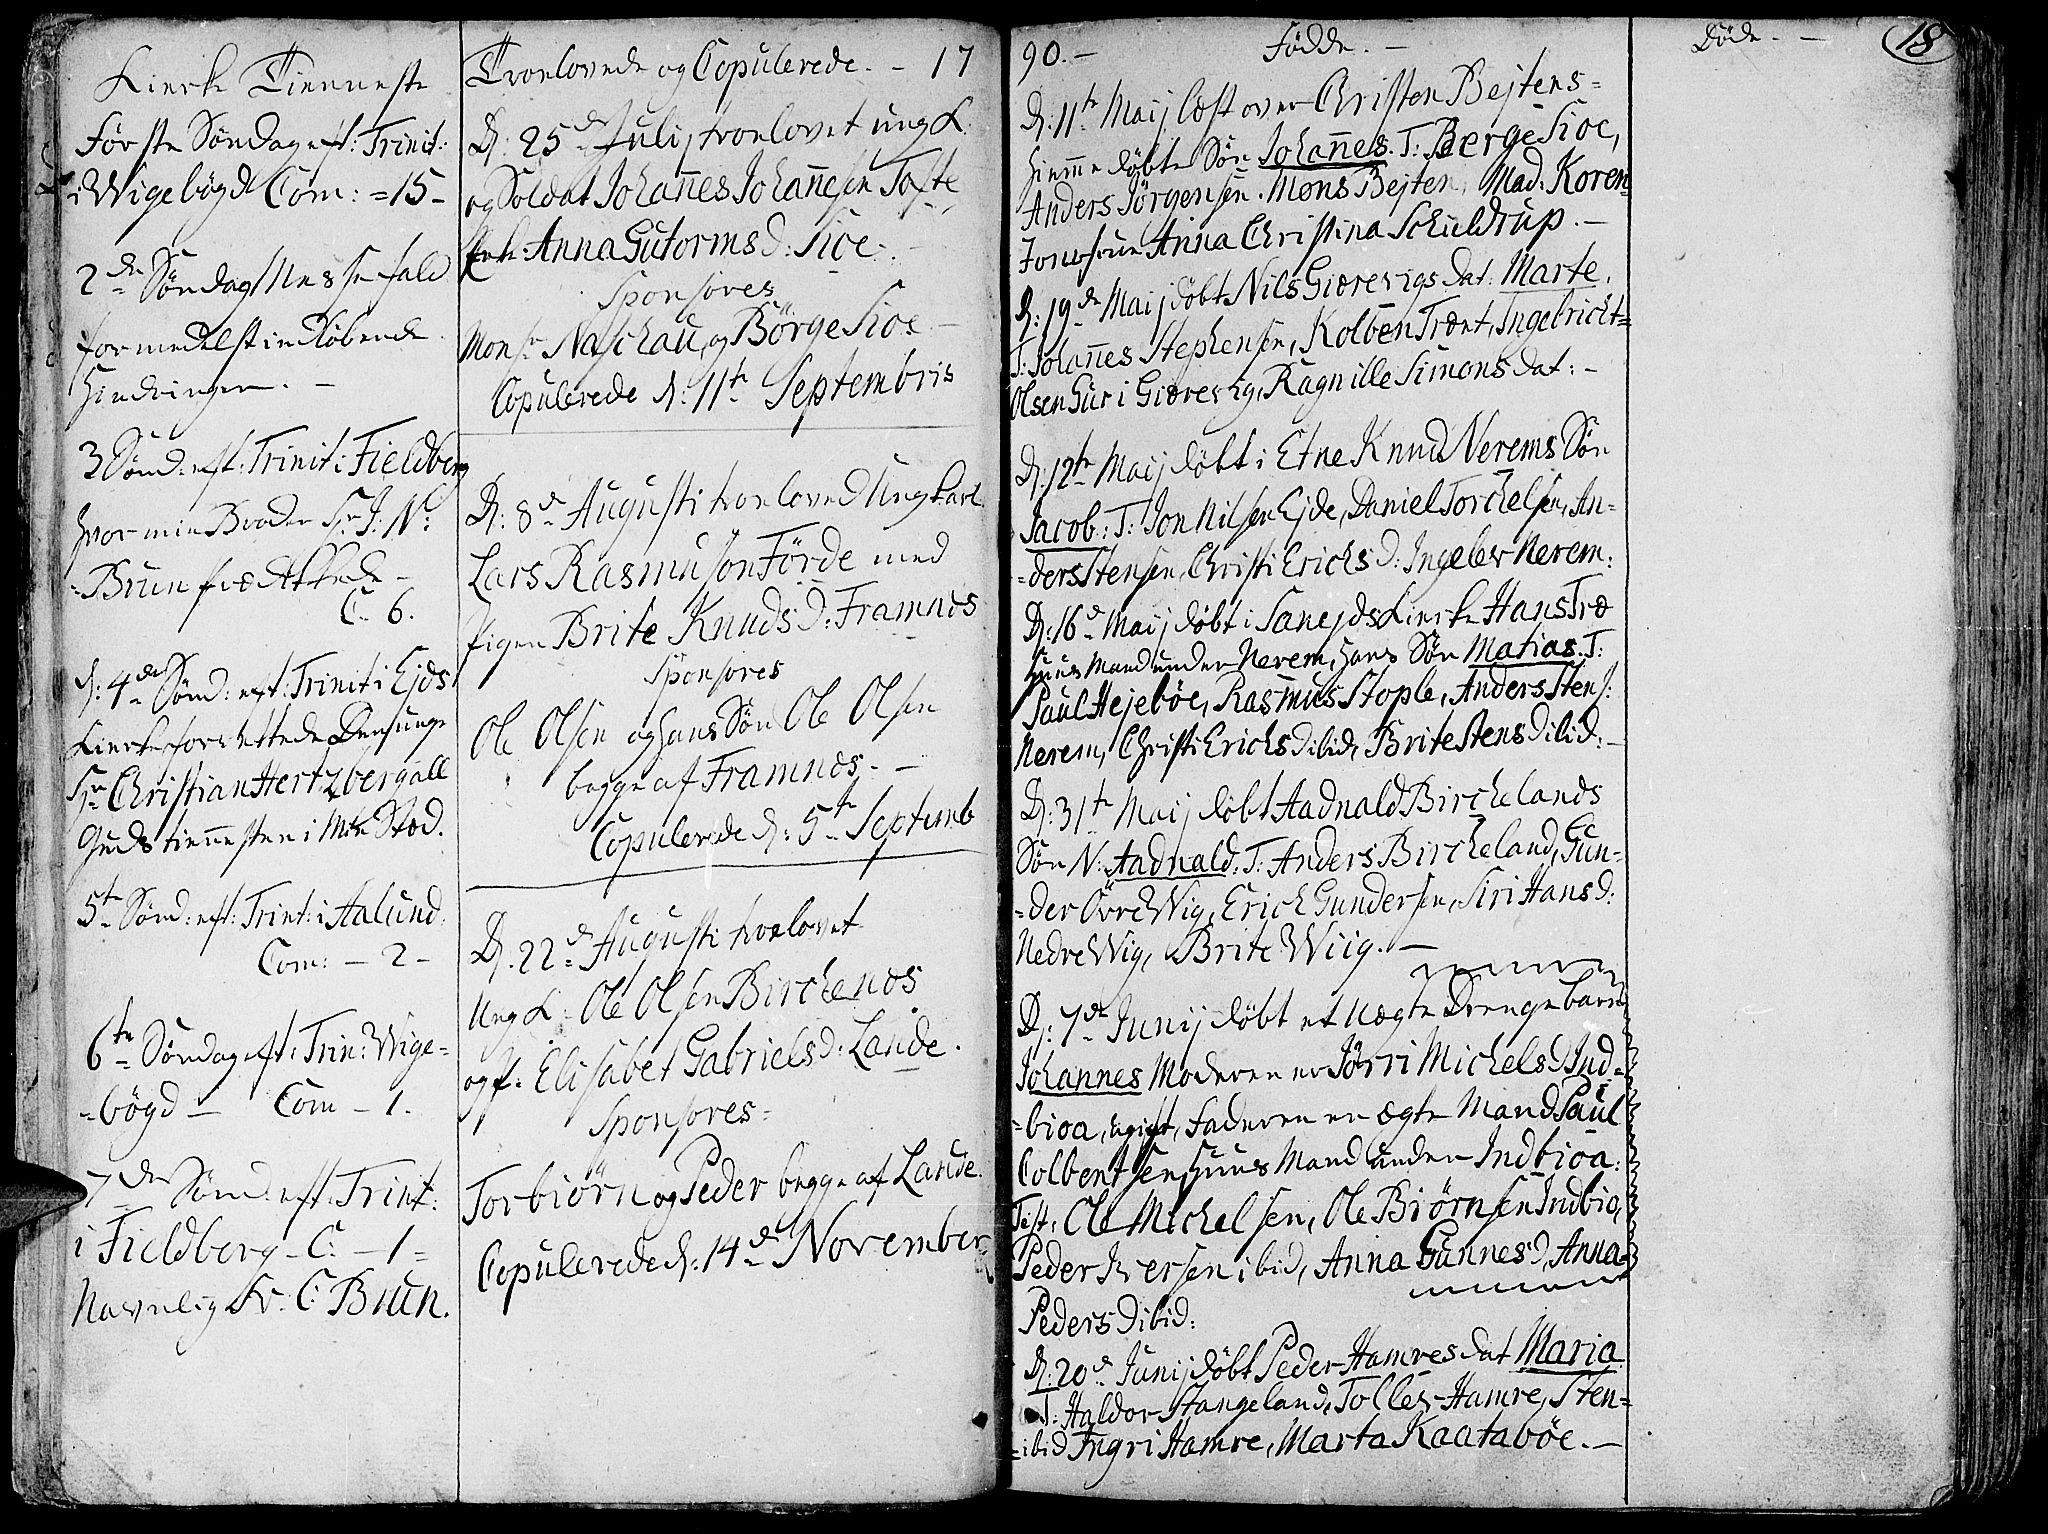 Kierke Tienneste
Første Søndag eft: Trinit:
i Wigebögd Com: = 15 -
2de Søndag Messefald
formedelst indløbende
Hindringer. -
3 Sønd: eft: Trinit i Fieldberg
hvor min Broder Sr J: N:
Brun prædikkede -
C. 6.
d: 4de Sønd: eft: Trinit i Ejds
Kierke forrettede Den unge
Sr Christian Hertzberg all
Guds tienesten i Mit Stæd.
5te Sønd: eft: Trinit: i Aalund
Com: - 2 -
6te Søndag eft: Trin: Wige=
=bögd - Com - 1.
7de Sønd: eft: Trinit:
i Fieldberg - C: - 1 =
Navnlig Fr: C: Brun.
Troelovede og Copulerede. - 17
D: 25de Julij troelovet ung K:
og Soldat Johañes Johañesen Tofte
Anna Gutormsd: Sioe.
Sponsores
Monsr Naschau, og Börge Sioe -
Copulerede d: 11te Septembris
D: 8de Augusti troeloved Ung Karl
Lars Rasmuson Förde med
Pigen Brite Knudsd: Framnæs
Sponsores
Ole Olsen og hans Søn Ole Olsen
begge af Framnæs. -
Copulerede d: 5te Septemb
D: 22de Augusti troelovet
Ung K: Ole Olsen Birckenæs
og p: Elisabet Gabrielsd: Lande.
Sponsores =
Torbiörn og Peder begge af Lande.
Copulerede d: 14de November
90. - Fødde. -
D: 11te Maij læst over Christen Bejtens=
hiemmedøbte Søn Johañes. T: Berge Sioe,
Anders Jörgensen. Mons Bejten, Mad. Koren
Jomfrue Anna Christina Schuldrup. -
D: 19de Maij døbt Nils Giærevigs Dat: Marte.
T: Johañes Stephensen, Kolben Træet, Ingebricht=
Olsen Guri Giærevig, Ragnille Simons dat: -
D: 12te Maij døbt i Etne Knud Nerems Søn
Jacob: T: Jon Nilsen Ejde, Daniel Torchelsen, An=
=ders Stensen, Christi Erichsd: Ingelev Nerem:
D: 16de Maij døbt i Sanejds Kierke Hans Træ
Huusmand under Nerem, hans Søn Matias. T:
Paul Hejebøe, Rasmus Stople, Anders Stens:
Nerem, Christi Erichsd ibid, Brite Stensd ibid: -
D: 31te Maij døbt Aadnald Birckelands
Søn N: Aadnald: T: Anders Birckeland, Gun=
=der Övre Wig, Erich Gundersen, Siri Hansd:
Nedre Wig, Brite Wiig. -
D: 7de Junij døbt et uægte Drengebarn
Johannes Moderen er Jörri Michelsd Ind=
=bioa, ugift, Faderen er ægte Mand Paul
Colbentsen Huusmand under Indbioa:
Test: Ole Michelsen, Ole Biörnsen Indbio,
Peder Iversen ibid, Anna Gunnesd, Anna
Pedersd ibid:
D: 20de Junij døbt Peder Hamres Dat Maria
T: Haldor Stangeland, Tollev Hamre, Sten=
=ibid Ingri Hamre, Marta Kaatabøe. -
Døde. -
18